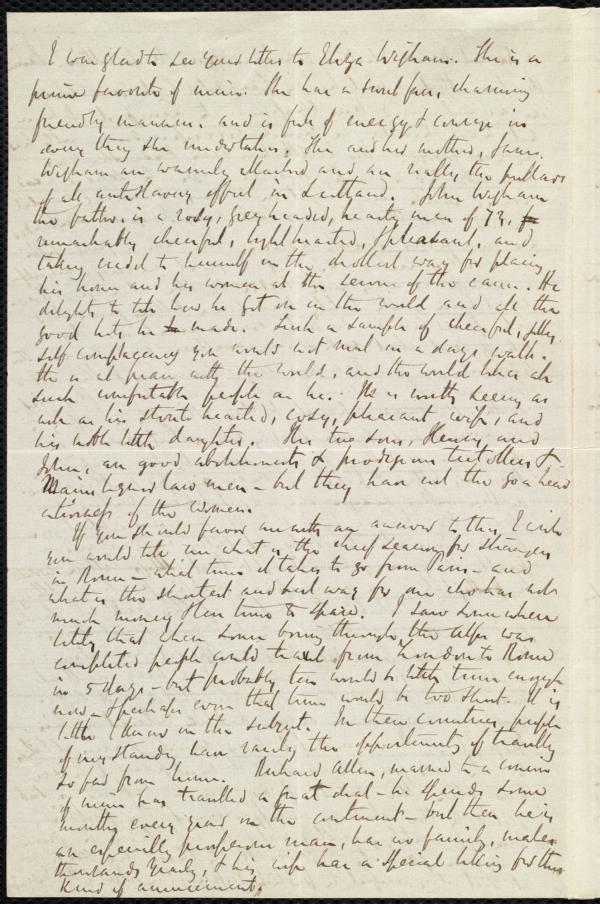 I was glad to see your letter to Eliza Wigham. She is a
prime favorite of mine. She has a sweet face, charming
friendly manner, and is full of energy & courage in
every thing she undertakes. She and her mother, Jane
Wigham are warmly attached and are really the pillars
of all antislavery effort in Scotland. John Wigham
the father, is a rosy, greyheaded, hearty man of 73,
remarkably cheerful, lighthearted, & pleasant, and
taking credit to himself in the drollest way for placing
his home and his women at the service of the cause. He
delights to tell how he got on in the world and all the
good hits he made. Such a sample of cheerful, jolly
self complacency you would not meet in a days walk.
He is at peace with the world, and the world likes all
such comfortable people as he. He is worth seeing as
well as his stout hearted, cosy, pleasant wife, and
his noble little daughter. His two sons, Henry, and
John, are good abolitionists & prodigious teetotallers &
Maine liquor law men - but they have not the go a head
ativeness of the women.
If you should favor me with an answer to this, I wish
you would tell me what is the chief season for strangers
in Rome - what time it takes to go from Paris - and
what is the shortest and best way for one who has not
much money & less time to spare. I saw somewhere
lately that when some boring through the Alps was
completed people could travel from London to Rome
in 5 days - but probably ten would be little time enough
now - & perhaps even that time would be too short. It is
little I know on the subject. In these countries, people
of my standing have rarely the opportunity of travelling
so far from home. Richard Allen, married to a cousin
of mine has travelled a great deal - he spends some
months every year on the continent - but then he is
an especially prosperous man, has no family, makes
thousands yearly, & his wife has a special liking for this
kind of amusement.